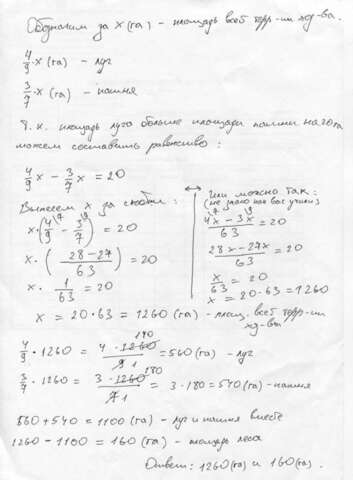 Обозначим за x (га) - площадь всей терр-ии хоз-ва.
4/9 x (га) - луг
3/7 x (га) - пашня
Т.к. площадь луга больше площади пашни на 20 га
можем составить равенство:
4/9 x - 3/7 x = 20
Вынесем x за скобки:
x·(4/9 \7 - 3/7 \9) = 20
x·(28-27/63) = 20
x · 1/63 = 20
↔ Или можно так:
(не знаю как вас учили)
4x \7 - 3x \9 / 63 = 20
28x - 27x / 63 = 20
x/63 = 20
x = 20·63 = 1260
x = 20·63 = 1260 (га) - площ. всей терр-ии
хоз-ва
4/9 · 1260 = 4·1260 140 / 9 1 = 560 (га) - луг
3/7 · 1260 = 3·1260 180 / 7 1 = 3·180 = 540 (га) - пашня
560 + 540 = 1100 (га) - луг и пашня вместе
1260 - 1100 = 160 (га) - площадь леса
Ответ: 1260 (га) и 160 (га).